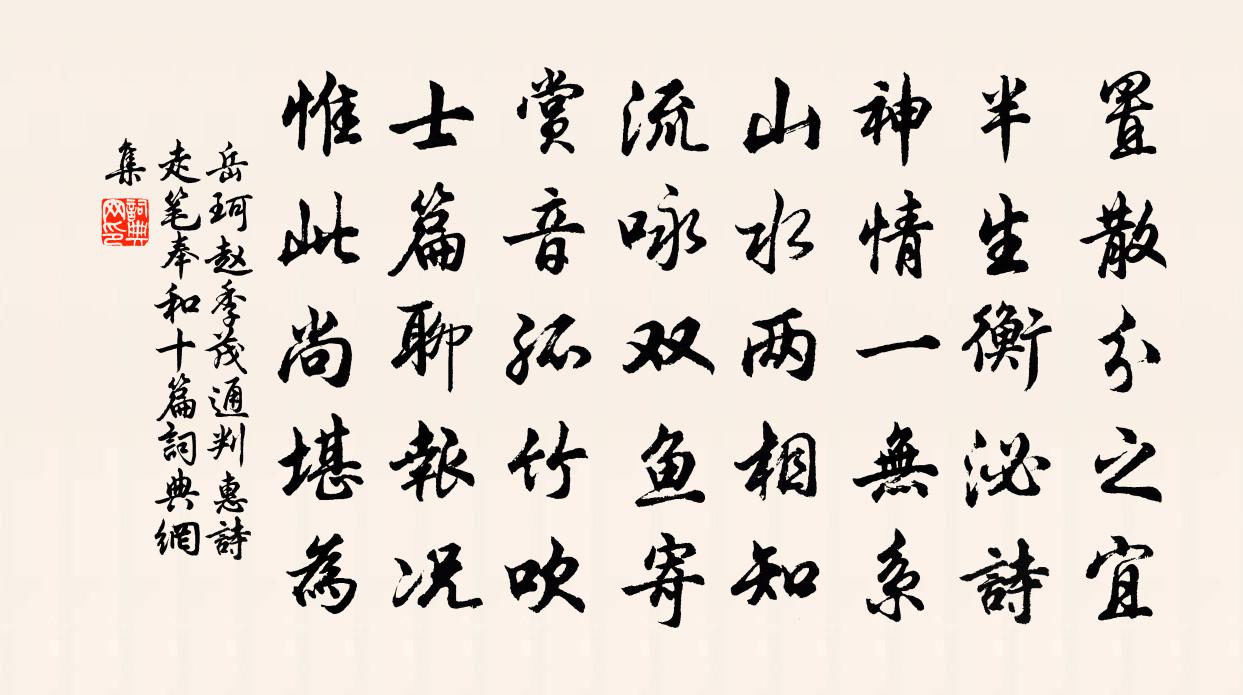 置散分之宜
半生衡泌詩
神情一無系
山水两相知
流咏双鱼寄
赏音孤竹吹
士篇聊報况
惟此尚堪為
岳珂赵季茂通判惠詩
走笔奉和十篇詞典網
集
詞典网印